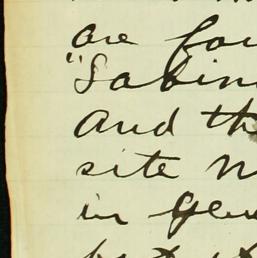 are fou
"Sabin
And th
site N
in Gen